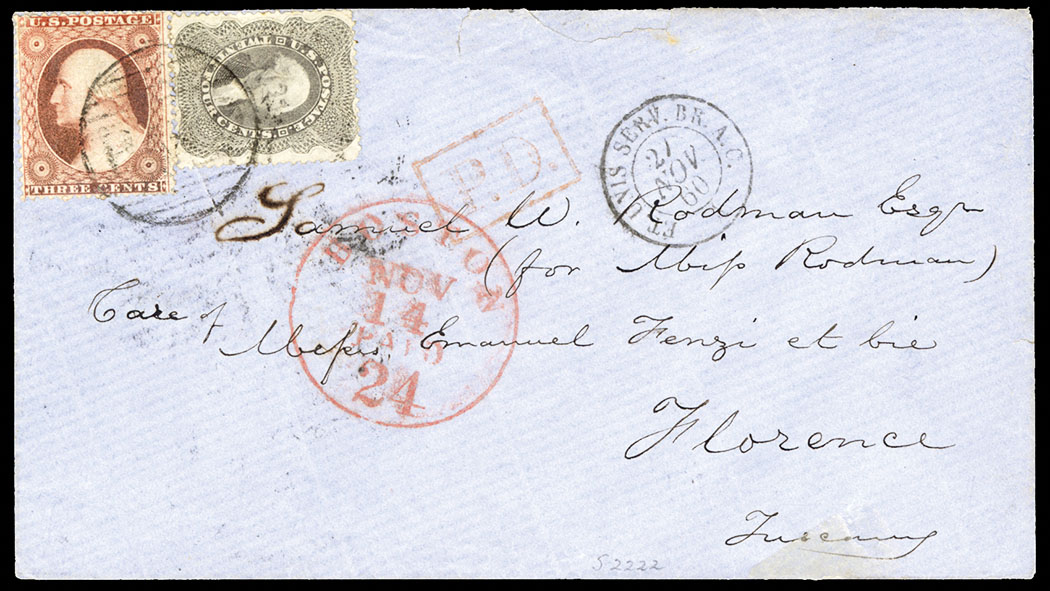 U.S. POSTAGE
THREE CENTS
U.S. POSTAGE
TWENTY FOUR CENTS.
P.D.
ET. UNIS SERV. BR. A.C.
27
NOV.
60
BOSTON
NOV
14
PAID
24
Samuel W. Rodman Esqr
(for Miss Rodman)
Care of
Messrs. Emanuel Fenzi et Cie
Florence
Tuscany
S 2222